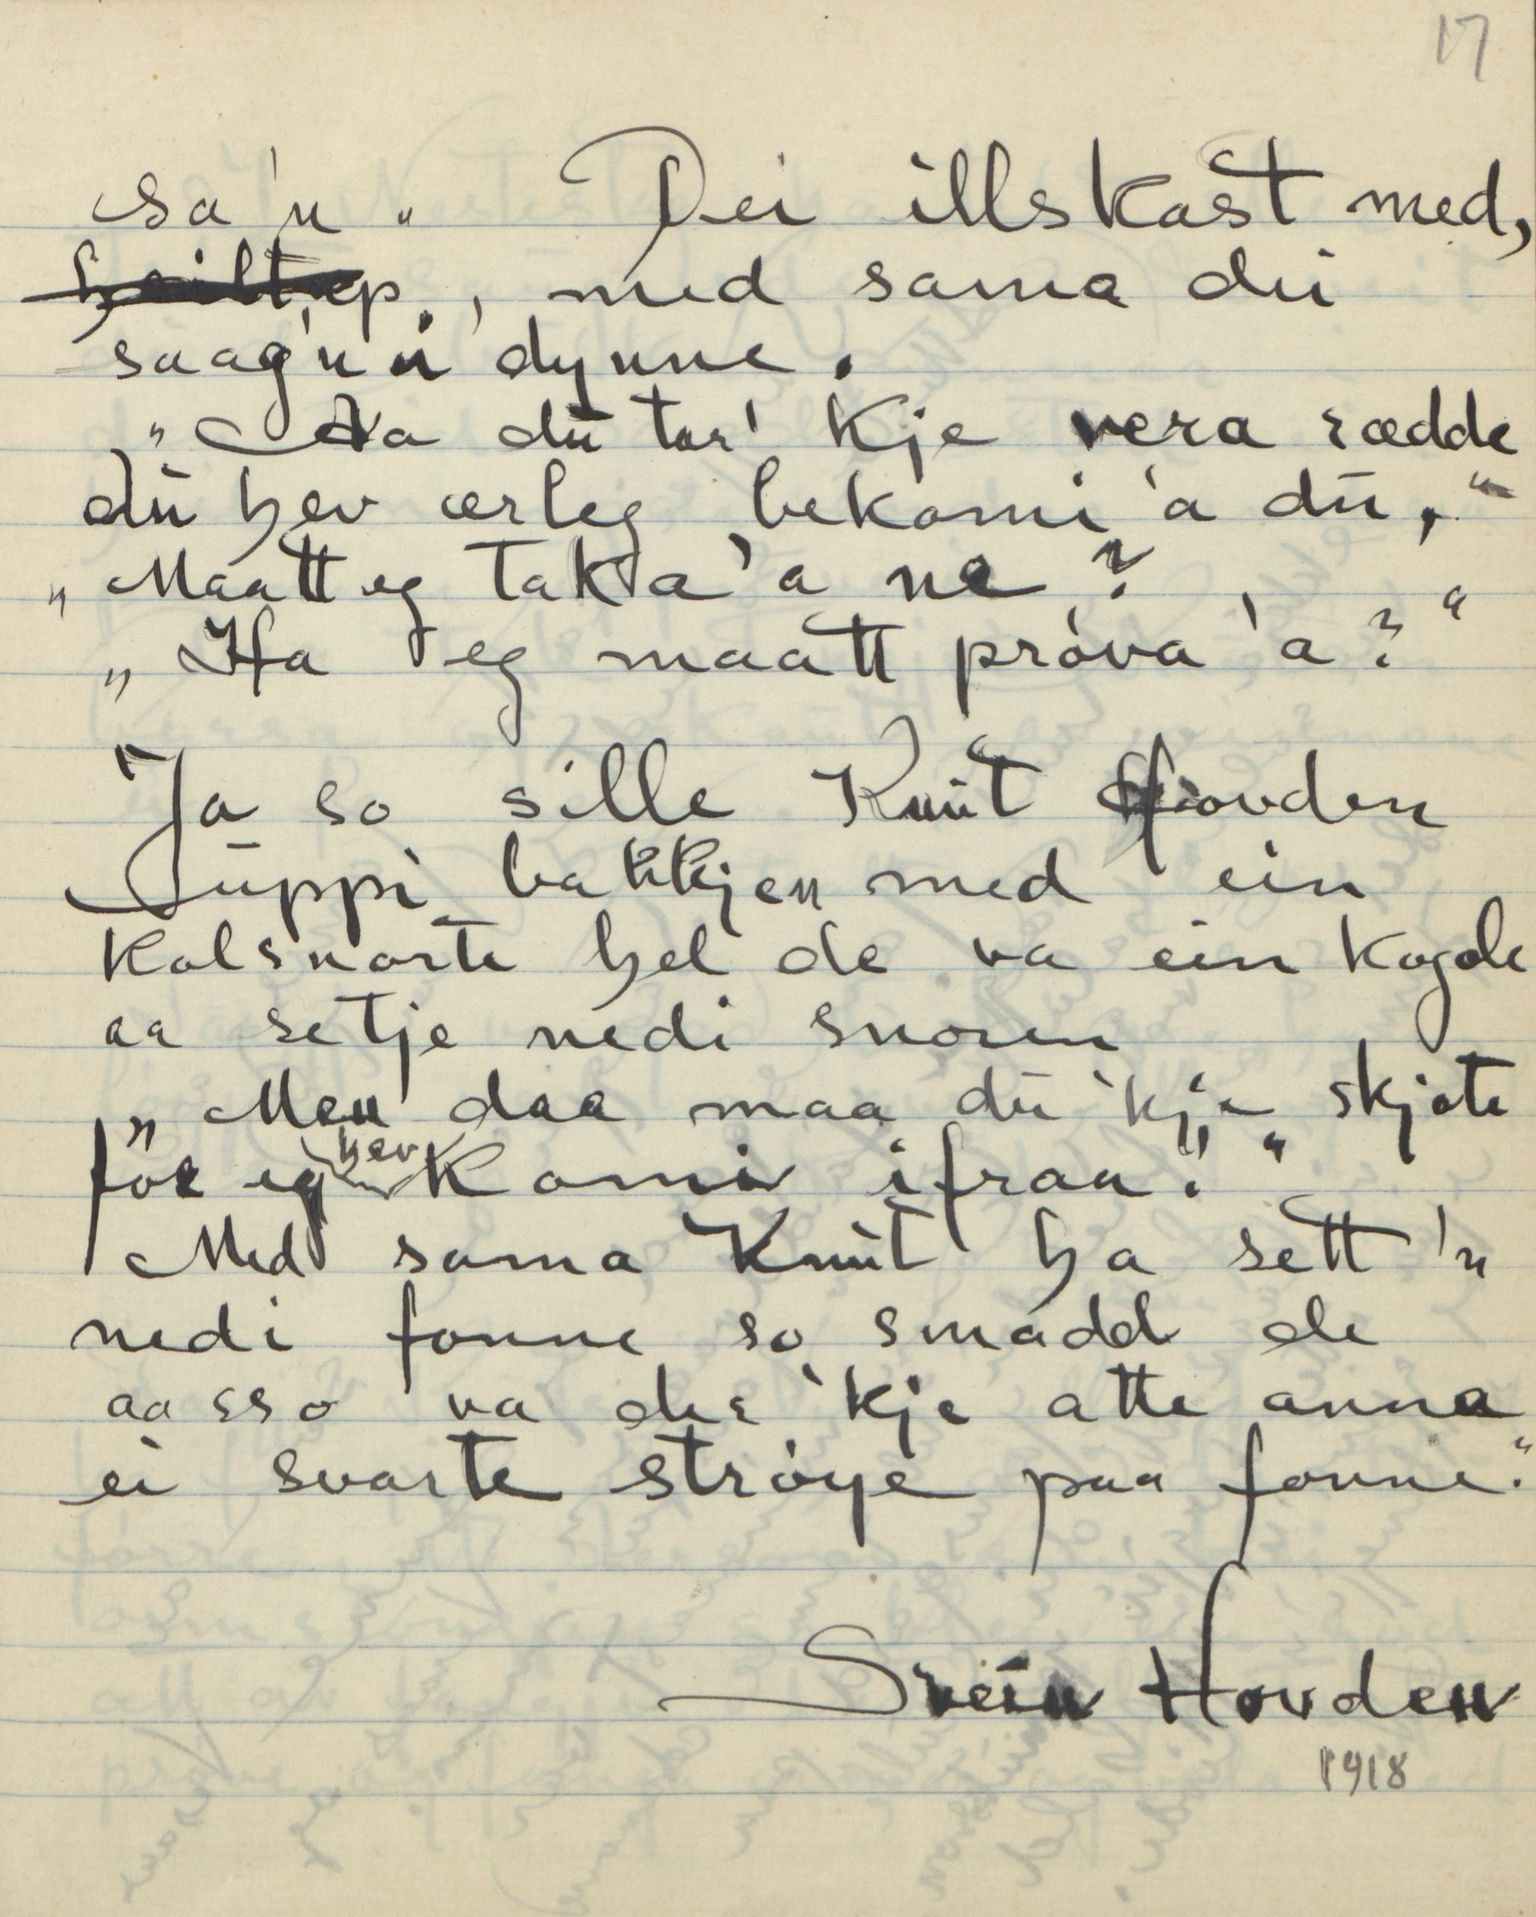 17
sa 'n". Dei illskast med,
, med sama du
saag 'n i dynne.
"Na du tar' kje vera rædde
du hev ærleg bekomi 'a du,"
"Maatt eg taka 'a ne?
"Ha eg maatt próva 'a?"
"Ja so sille Knut Hovden
uppi bakkjen med ein
kolsnorte hel de va ein kogde
aa setje nedi snoren
"Men daa maa du 'kje skjote
för eg hev komi ifraa!"
Med sama Knut ha sett 'n
nedi fonne so smadd de
aa sso va der 'kje atte anna
ei svarte stróye paa fonne."
Svein Hovden
1918